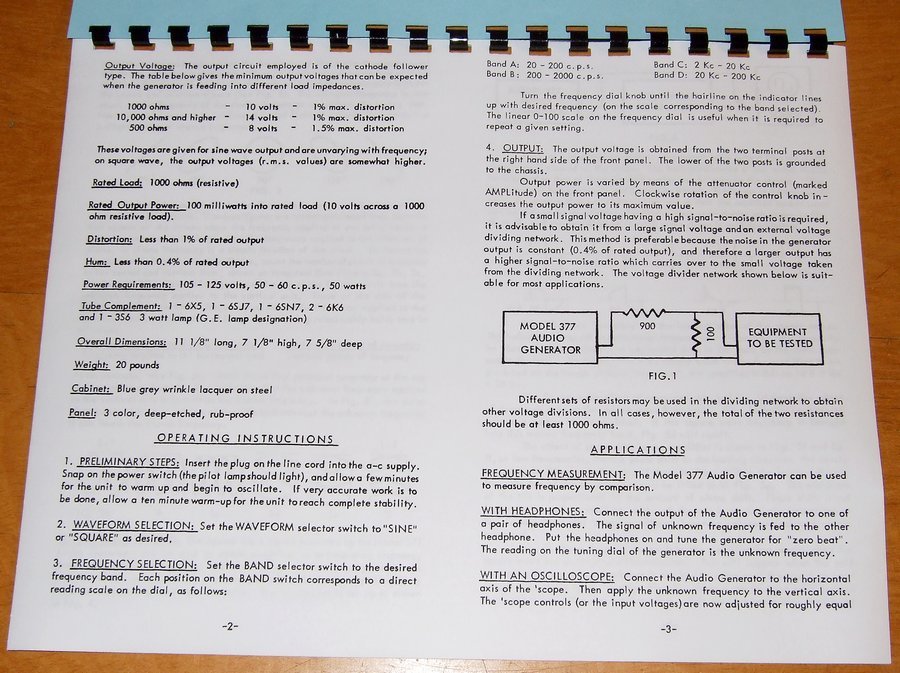 Output Voltage: The output circuit employed is of the cathode follower
type. The table below gives the minimum output voltages that can be expected
when the generator is feeding into different load impedances.
1000 ohms - 10 volts - 1% max. distortion
10,000 ohms and higher - 14 volts - 1% max. distortion
500 ohms - 8 volts - 1.5% max. distortion
These voltages are given for sine wave output and are unvarying with frequency;
on square wave, the output voltages (r.m.s. values) are somewhat higher.
Rated Load: 1000 ohms (resistive)
Rated Output Power: 100 milliwatts into rated load (10 volts across a 1000
ohm resistive load).
Distortion: Less than 1% of rated output
Hum: Less than 0.4% of rated output
Power Requirements: 105 - 125 volts, 50 - 60 c.p.s., 50 watts
Tube Complement: 1 - 6X5, 1 - 6SJ7, 1 - 6SN7, 2 - 6K6
and 1 - 3S6 3 watt lamp (G.E. lamp designation)
Overall Dimensions: 11 1/8" long, 7 1/8" high, 7 5/8" deep
Weight: 20 pounds
Cabinet: Blue grey wrinkle lacquer on steel
Panel: 3 color, deep-etched, rub-proof
OPERATING INSTRUCTIONS
1. PRELIMINARY STEPS: Insert the plug on the line cord into the a-c supply.
Snap on the power switch (the pilot lamp should light), and allow a few minutes
for the unit to warm up and begin to oscillate. If very accurate work is to
be done, allow a ten minute warm-up for the unit to reach complete stability.
2. WAVEFORM SELECTION: Set the WAVEFORM selector switch to "SINE"
or "SQUARE" as desired.
3. FREQUENCY SELECTION: Set the BAND selector switch to the desired
frequency band. Each position on the BAND switch corresponds to a direct
reading scale on the dial, as follows:
-2-
Band A: 20 - 200 c.p.s. Band C: 2 Kc - 20 Kc
Band B: 200 - 2000 c.p.s. Band D: 20 Kc - 200 Kc
Turn the frequency dial knob until the hairline on the indicator lines
up with desired frequency (on the scale corresponding to the band selected).
The linear 0-100 scale on the frequency dial is useful when it is required to
repeat a given setting.
4. OUTPUT: The output voltage is obtained from the two terminal posts at
the right hand side of the front panel. The lower of the two posts is grounded
to the chassis.
Output power is varied by means of the attenuator control (marked
AMPLitude) on the front panel. Clockwise rotation of the control knob in-
creases the output power to its maximum value.
If a small signal voltage having a high signal-to-noise ratio is required,
it is advisable to obtain it from a large signal voltage and an external voltage
dividing network. This method is preferable because the noise in the generator
output is constant (0.4% of rated output), and therefore a larger output has
a higher signal-to-noise ratio which carries over to the small voltage taken
from the dividing network. The voltage divider network shown below is suit-
able for most applications.
MODEL 377
AUDIO
GENERATOR
900
100
EQUIPMENT
TO BE TESTED
FIG. 1
Different sets of resistors may be used in the dividing network to obtain
other voltage divisions. In all cases, however, the total of the two resistances
should be at least 1000 ohms.
APPLICATIONS
FREQUENCY MEASUREMENT: The Model 377 Audio Generator can be used
to measure frequency by comparison.
WITH HEADPHONES: Connect the output of the Audio Generator to one of
a pair of headphones. The signal of unknown frequency is fed to the other
headphone. Put the headphones on and tune the generator for "zero beat".
The reading on the tuning dial of the generator is the unknown frequency.
WITH AN OSCILLOSCOPE: Connect the Audio Generator to the horizontal
axis of the 'scope. Then apply the unknown frequency to the vertical axis.
The 'scope controls (or the input voltages) are now adjusted for roughly equal
-3-